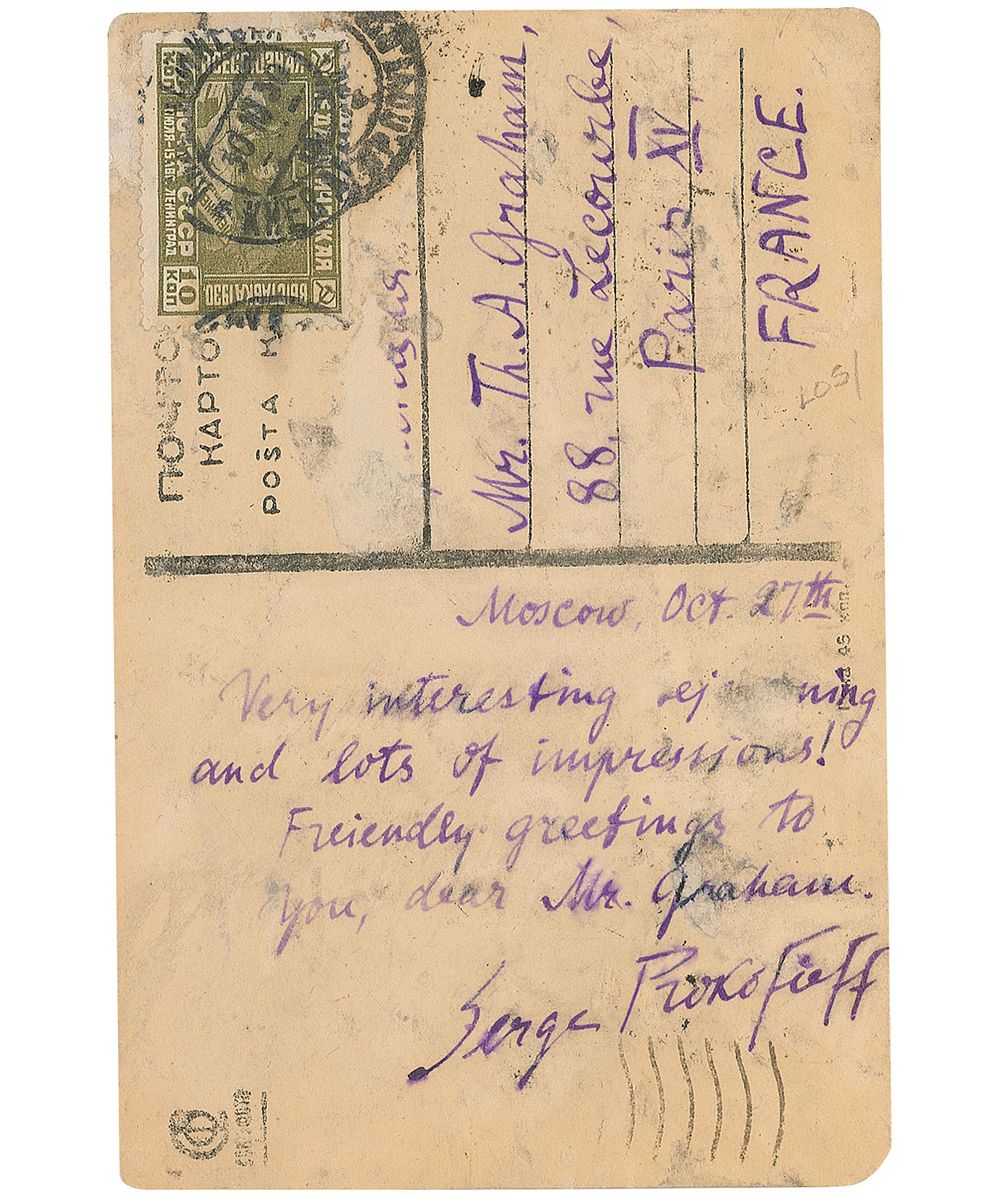 ВСЕСОЮЗНАЯ
ВЫСТАВКА 1930
ПОЧТА СССР
ЛЕНИНГРАД
10
КОП
POŠTA
Mr. Th. A. Graham,
88, rue Lecourbe,
Paris XV,
FRANCE.
Moscow, Oct. 27th
Very interesting
and lots of impressions!
Freiendly greetings to
you, dear Mr. Graham.
Serge Prokofieff